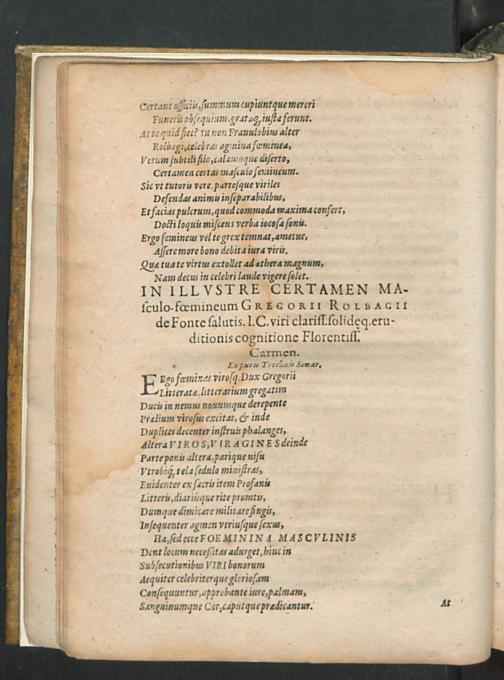 Certant officiis, summum cupiuntque mereri
Funeris obsequium, grataq, iusta ferunt.
At te quid fiet? tu non Frauulobius alter
Rolbagi, celebras agmina fœminea,
Verum subtili filo, calamoque diserto,
Certamen certas masculo femineum.
Sic vt tutoris vere, partesque viriles
Defendas animis inseparabilibus,
Et facias pulcrum, quod commoda maxima confert,
Docti loquis miscens verba iocosa sonis.
Ergo femineus vel te grex temnat, ametue,
Assere more bono debita iura viris.
Quæ tua te virtus extollet ad æthera magnum,
Nam decus in celebri laude vigere solet.
IN ILLVSTRE CERTAMEN MA-
sculo-fœmineum GREGORII ROLBAGII
de Fonte salutis. I.C. viri clariss. solideq. eru-
ditionis cognitione Florentiss.
Carmen.
Ex puris Trochais Senar.
ERgo fœminas virosq. Dux Gregorii
Litteratæ, litterarium gregatim
Ducis in nemus nouumque derepente
Prælium virosus excitas, & inde
Duplices decenter instruis phalanges,
Altera VIROS, VIRAGINES deinde
Parte ponis altera, parique nisu
Vtrobiq, tela sedulo ministras,
Euidenter ex sacris item Profanis
Litteris, diariisque rite promtis,
Dumque dimicare militare fingis,
Insequenter agmen vtriusque sexus,
Ha, sed ecce FOEMININA MASCVLINIS
Dent locum necessitas adurget, hinc in
Subsecutionibus VIRI bonorum
Aequiter celebriterque gloriosam
Consequuntur, approbante iure, palmam,
Sanguinumque Cor, caputque prædicantur.
At